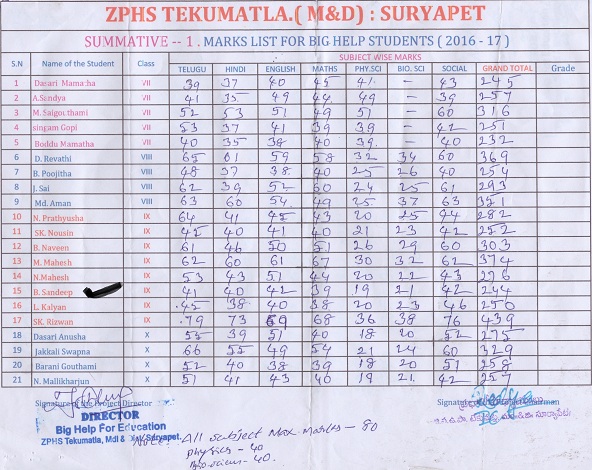 ZPHS TEKUMATLA.( M&D) : SURYAPET
SUMMATIVE -- 1 . MARKS LIST FOR BIG HELP STUDENTS ( 2016 - 17 )
S.N Name of the Student Class SUBJECT WISE MARKS
TELUGU HINDI ENGLISH MATHS PHY.SCI BIO. SCI SOCIAL GRAND TOTAL Grade
1 Dasari Mamatha VII 39 37 40 45 41 - 43 245
2 A.Sandya VII 41 35 49 44 49 - 39 257
3 M. Saigouthami VII 52 53 51 49 51 - 60 316
4 singam Gopi VII 53 37 41 39 39 - 42 251
5 Boddu Mamatha VII 40 35 38 40 39 - 40 232
6 D. Revathi VIII 65 61 59 58 32 34 60 369
7 B. Poojitha VIII 48 37 38 40 25 26 40 254
8 J. Sai VIII 62 39 52 60 24 25 61 293
9 Md. Aman VIII 63 60 54 49 25 37 63 351
10 N. Prathyusha IX 64 41 45 43 20 25 44 282
11 SK. Nousin IX 45 40 41 40 21 23 42 252
12 B. Naveen IX 61 46 50 51 26 29 60 303
13 M. Mahesh IX 62 60 61 67 30 32 62 374
14 N.Mahesh IX 53 43 51 44 20 22 43 276
15 B. Sandeep IX 41 40 42 39 19 21 42 244
16 L. Kalyan IX 45 38 40 38 20 23 46 250
17 SK. Rizwan IX 79 73 69 68 36 38 76 439
18 Dasari Anusha X 55 39 51 40 18 20 52 275
19 Jakkali Swapna X 66 55 49 54 21 24 60 329
20 Barani Gouthami X 52 40 38 39 18 20 51 258
21 N. Mallikharjun X 51 41 43 40 19 21 42 257
Signature of the Project Director
DIRECTOR
Big Help For Education
ZPHS Tekumatla, Mdl & Suryapet.
Note: All subject Max. Marks - 80
Physics - 40